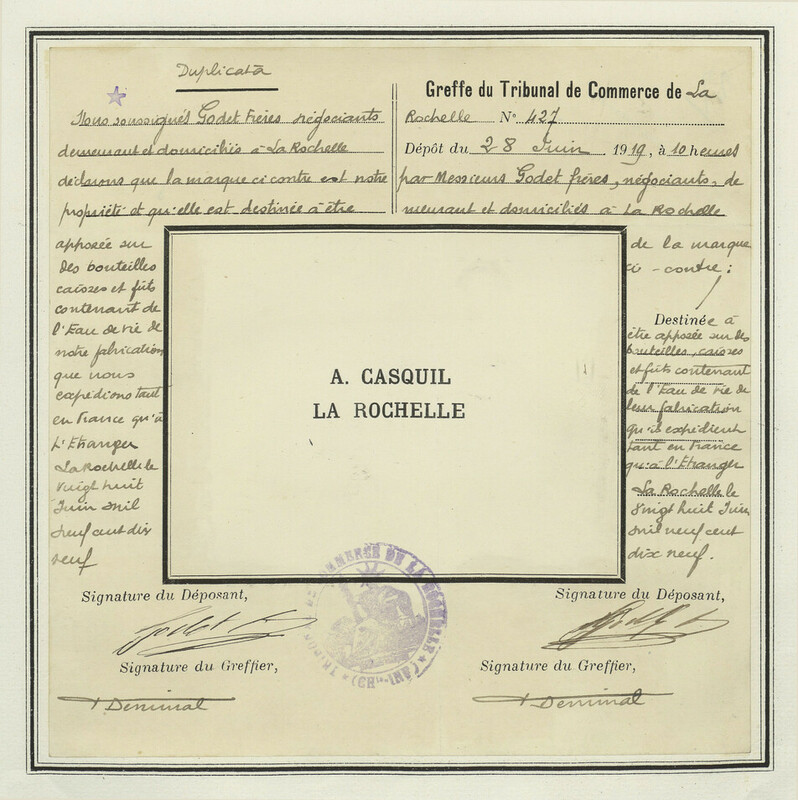 Duplicata
Nous soussignés Godet Frères négociants
demeurant et domiciliés à La Rochelle
déclarons que la marque ci contre est notre
propriété et qu'elle est destinée à être
apposée sur
des bouteilles
caisses et fûts
contenant de
l'Eau de vie de
notre fabrication
que nous
expédions tant
en France qu'à
L'Etranger
La Rochelle le
vingt huit
Juin mil
neuf cent dix
neuf
Greffe du Tribunal de Commerce de La
Rochelle N° 427
Dépôt du 28 Juin 1919, à 10 heures
par Messieurs Godet frères, négociants, de
meurant et domiciliés à La Rochelle
de la marque
ci-contre;
Destinée à
être apposée sur des
bouteilles, caisses
et fûts contenant
de l'Eau de vie de
leur fabrication
qu'ils expédient
tant en France
qu'à l'Etranger
La Rochelle le
vingt huit Juin
mil neuf cent
dix neuf.
A. CASQUIL
LA ROCHELLE
Signature du Déposant,
Signature du Greffier,
Signature du Déposant,
Signature du Greffier,
COMMERCE DE LA ROCHELLE